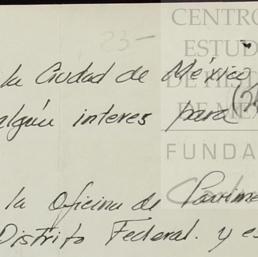 23-
CENTRO
ESTUD
DE HIST
DE MÉX
FUNDA
la Ciudad de México
algún interes para
la Oficina de
Distrito Federal. y es